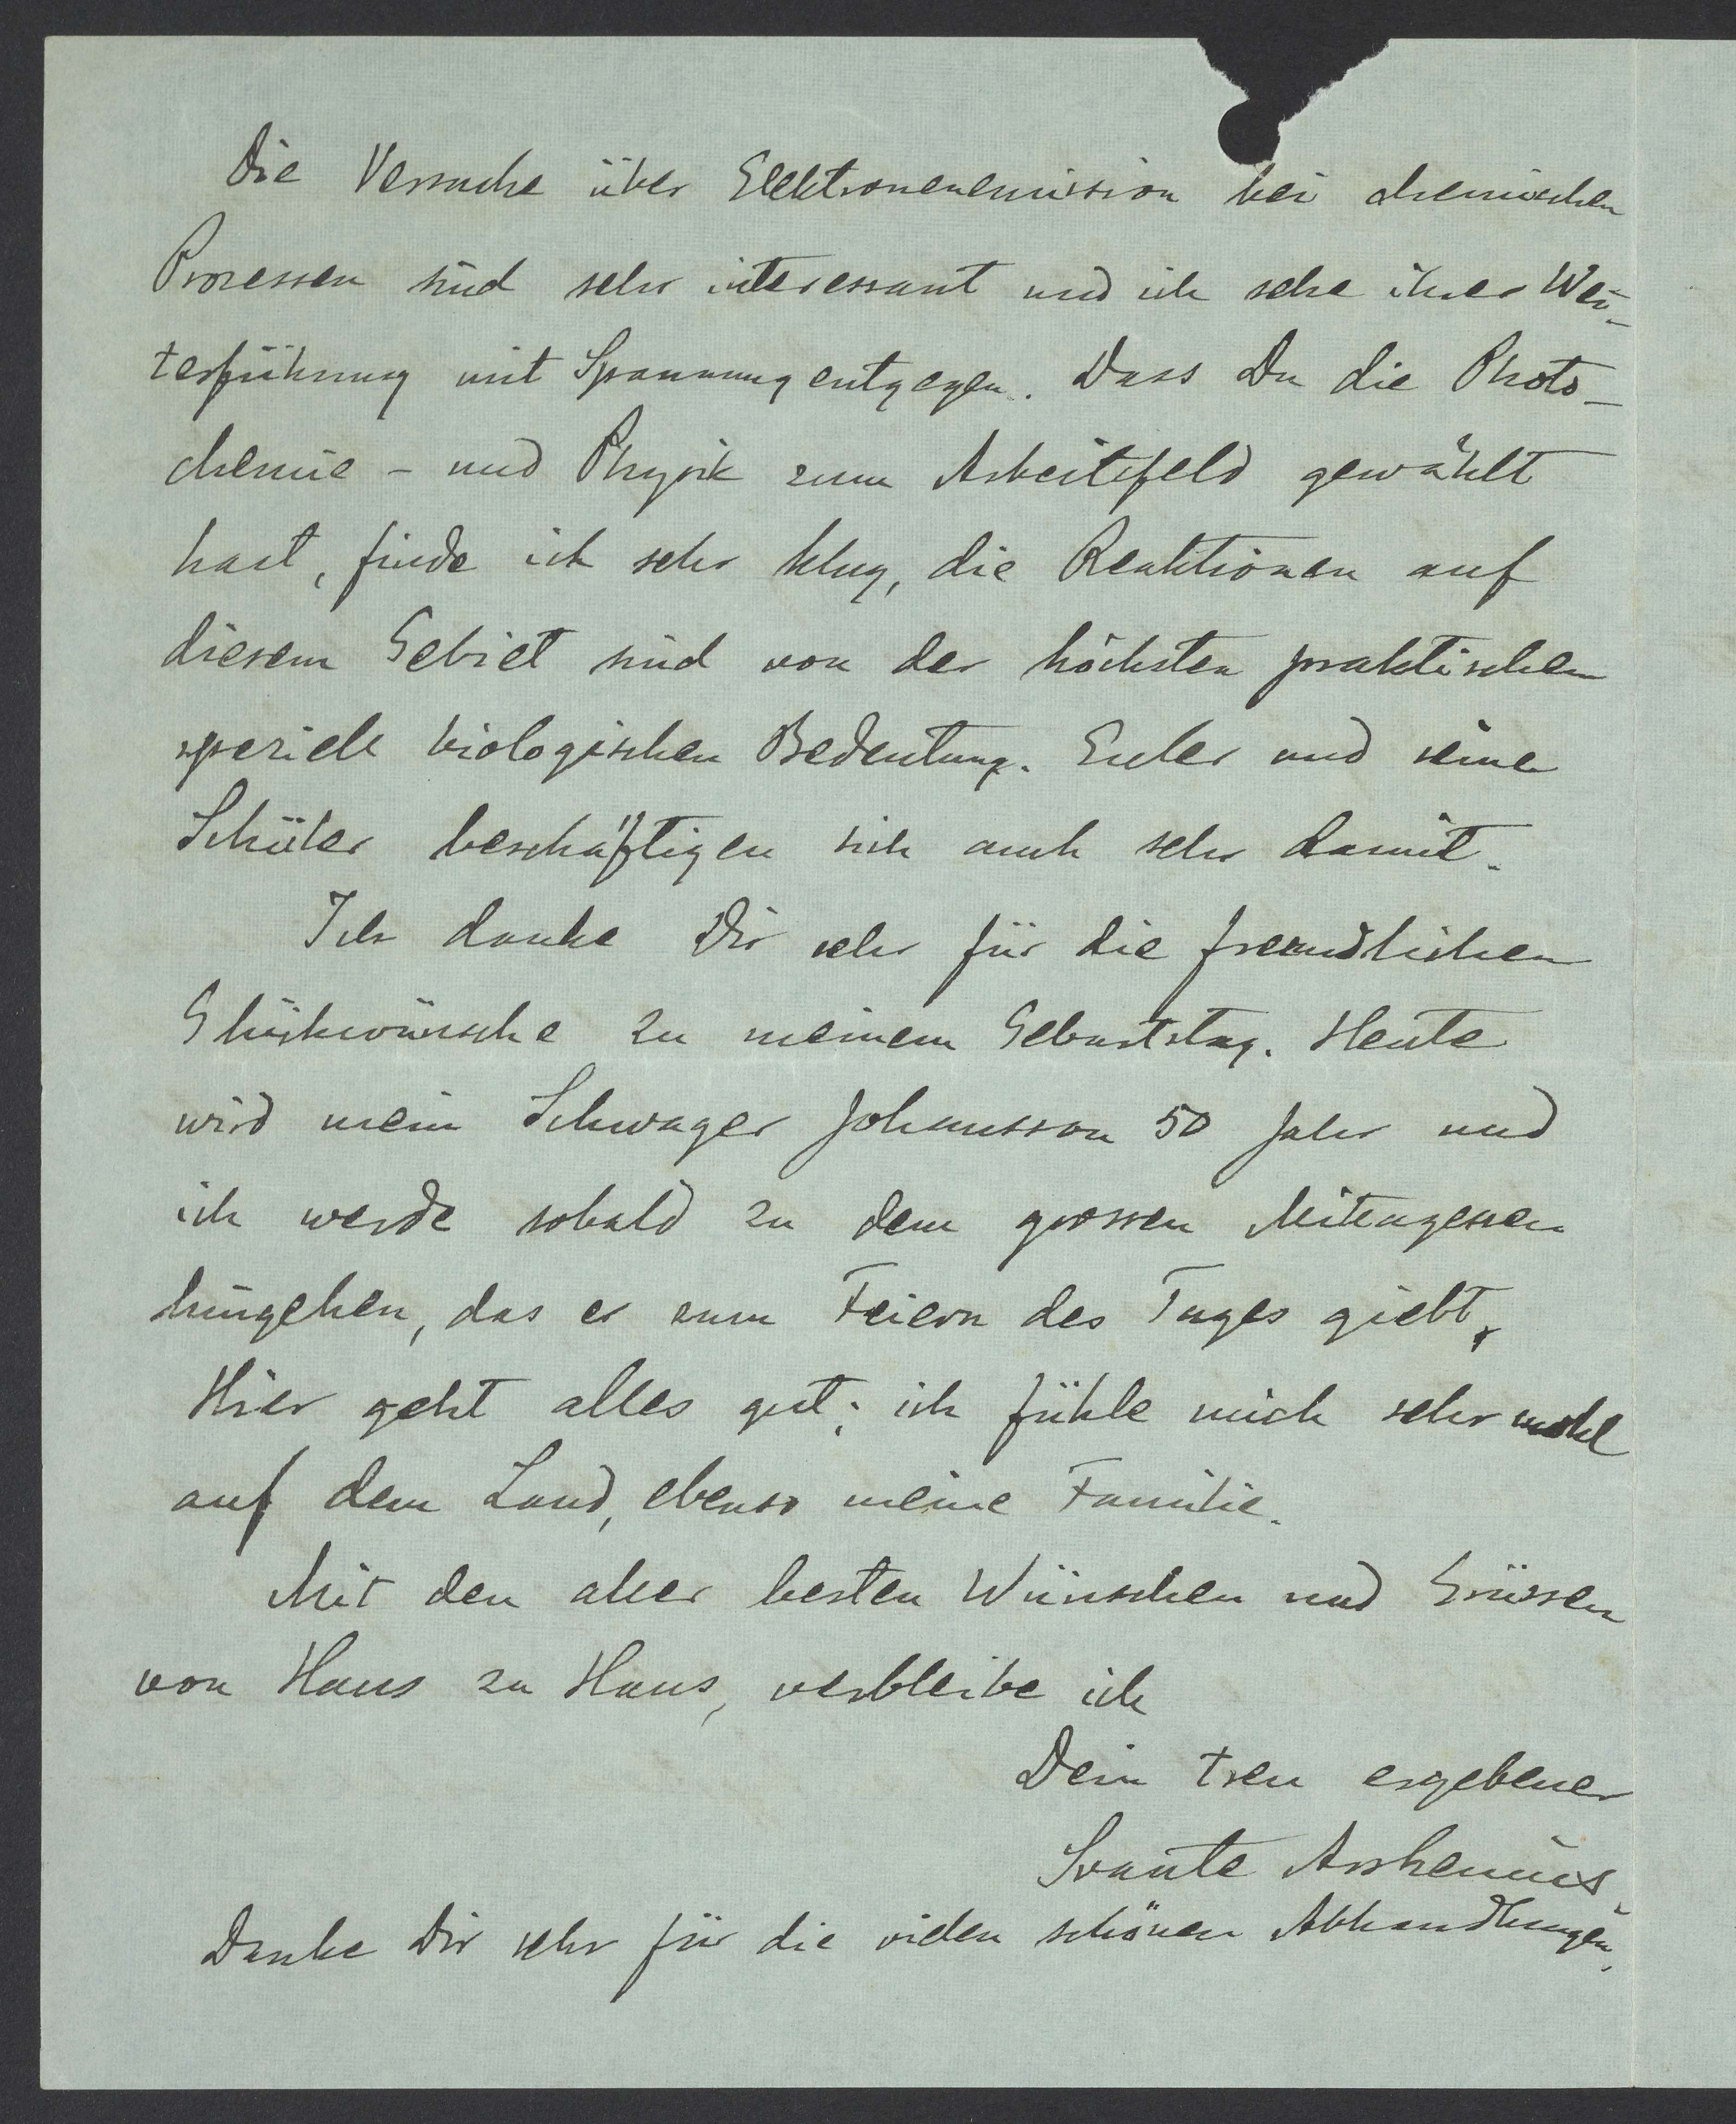 Die Versuche über Elektronenemission bei chemischen
Prozessen sind sehr interessant und ich sehe ihrer Wei-
terführung mit Spannung entgegen. Dass Du die Photo-
chemie - und Physik zum Arbeitsfeld gewählt
hast, finde ich sehr klug, die Reaktionen auf
diesem Gebiet sind von der höchsten praktischen
speziell biologischen Bedeutung. Euler und seine
Schüler beschäftigen sich auch sehr damit.
Ich danke Dir sehr für die freundlichen
Glückwünsche zu meinem Geburtstag. Heute
wird mein Schwager Johansson 50 Jahr und
ich werde sobald zu dem grossen Mittagessen
hingehen, das er zum Feiern des Tages giebt.
Hier geht alles gut; ich fühle mich sehr wohl
auf dem Land, ebenso meine Familie.
Mit den aller besten Wünschen und Grüssen
von Haus zu Haus, verbleibe ich
Dein treu ergebener
Svante Arrhenius.
Danke Dir sehr für die vielen schönen Abhandlungen.